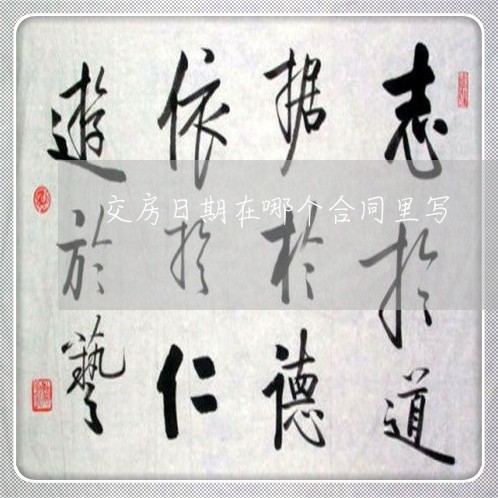 志於道
据於德
依於仁
遊於藝
交房日期在哪个合同里写